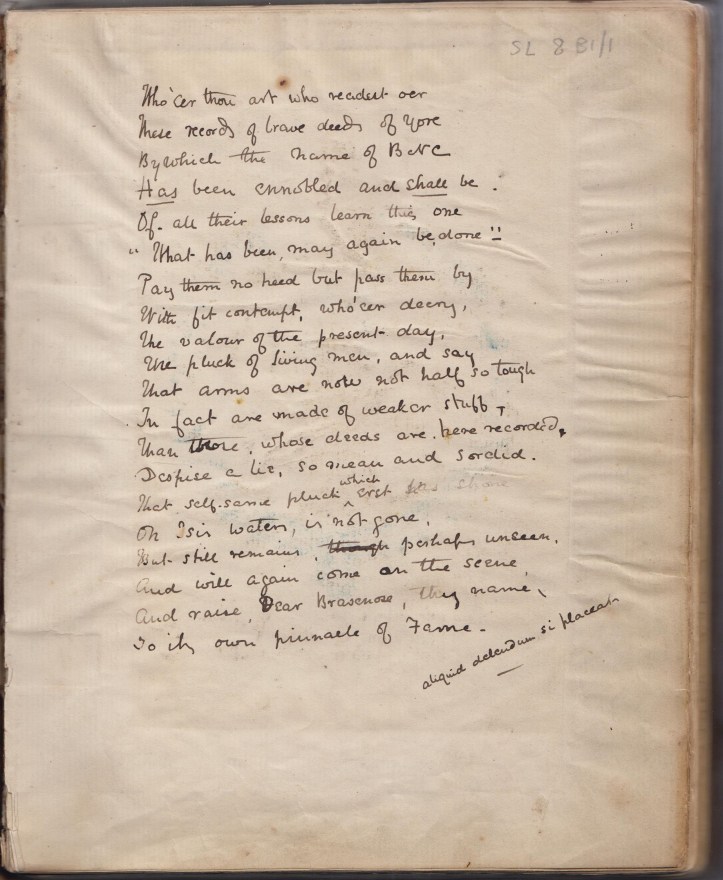 SL 8 B1/1
Who'er thou art who readest oer
These records of brave deeds of Yore
By which the name of BNC
Has been ennobled and shall be.
Of all their lessons learn this one
"What has been, may again be done"!
Pay them no heed but pass them by
With fit contempt, who'er decry,
The valour of the present day,
The pluck of living men, and say
That arms are now not half so tough
In fact are made of weaker stuff,
Than those, whose deeds are here recorded,
Despise a lie, so mean and sordid.
That self-same pluck which erst has shone
On Isis waters, is not gone,
But still remains, though perhaps unseen,
And will again come on the scene,
And raise, Dear Brasenose, thy name,
To its own pinnacle of Fame.
aliquid delendum si placeat